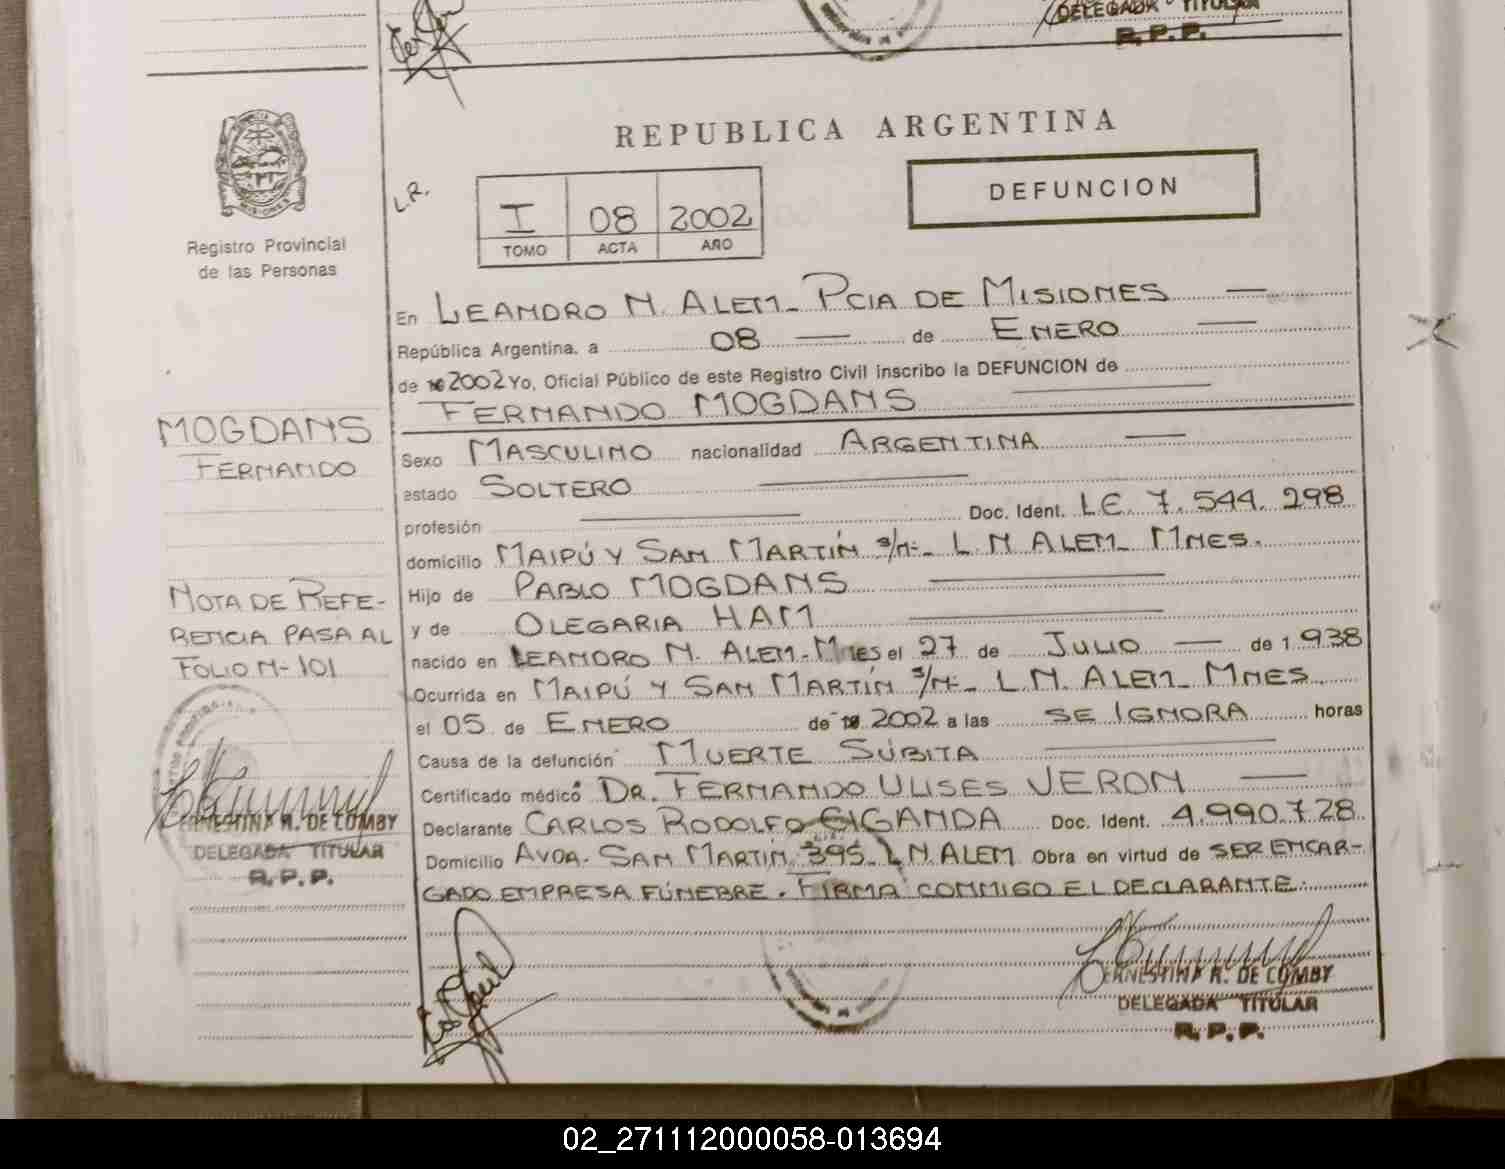 DELEGADA TITULAR
R.P.P.
REPUBLICA ARGENTINA
DEFUNCION
L.R.
I 08 2002
TOMO ACTA AÑO
MISIONES
Registro Provincial
de las Personas
En LEANDRO N. ALEM_ PCIA DE MISIONES
República Argentina, a 08 de ENERO
de 2002 Yo, Oficial Público de este Registro Civil inscribo la DEFUNCION de
FERNANDO MOGDANS
MOGDANS
FERNANDO
Sexo MASCULINO nacionalidad ARGENTINA
estado SOLTERO
profesión Doc. Ident. LE. 7.544.298
domicilio MAIPÚ Y SAN MARTÍN S/N- L.N ALEM_ MNES.
NOTA DE REFE-
RENCIA PASA AL
FOLIO N-101
Hijo de PABLO MOGDANS
y de OLEGARIA HAM
nacido en LEANDRO N. ALEM-Mnes el 27 de JULIO de 1.938
Ocurrida en MAIPÚ Y SAN MARTÍN S/N-_ L.N. ALEM_ MNES.
el 05 de ENERO de 2002 a las SE IGNORA horas
Causa de la defunción MUERTE SÚBITA
Certificado médico DR. FERNANDO ULISES VERON
Declarante CARLOS RODOLFO GIGANDA Doc. Ident. 4.990.728
Domicilio AVDA. SAN MARTÍN 395_ L N. ALEM Obra en virtud de SER ENCAR-
GADO EMPRESA FÚNEBRE. FIRMA CONMIGO EL DECLARANTE.
ERNESTINA R. DE COMBY
DELEGADA TITULAR
R.P.P.
ERNESTINA R. DE COMBY
DELEGADA TITULAR
R.P.P.
02_271112000058-013694